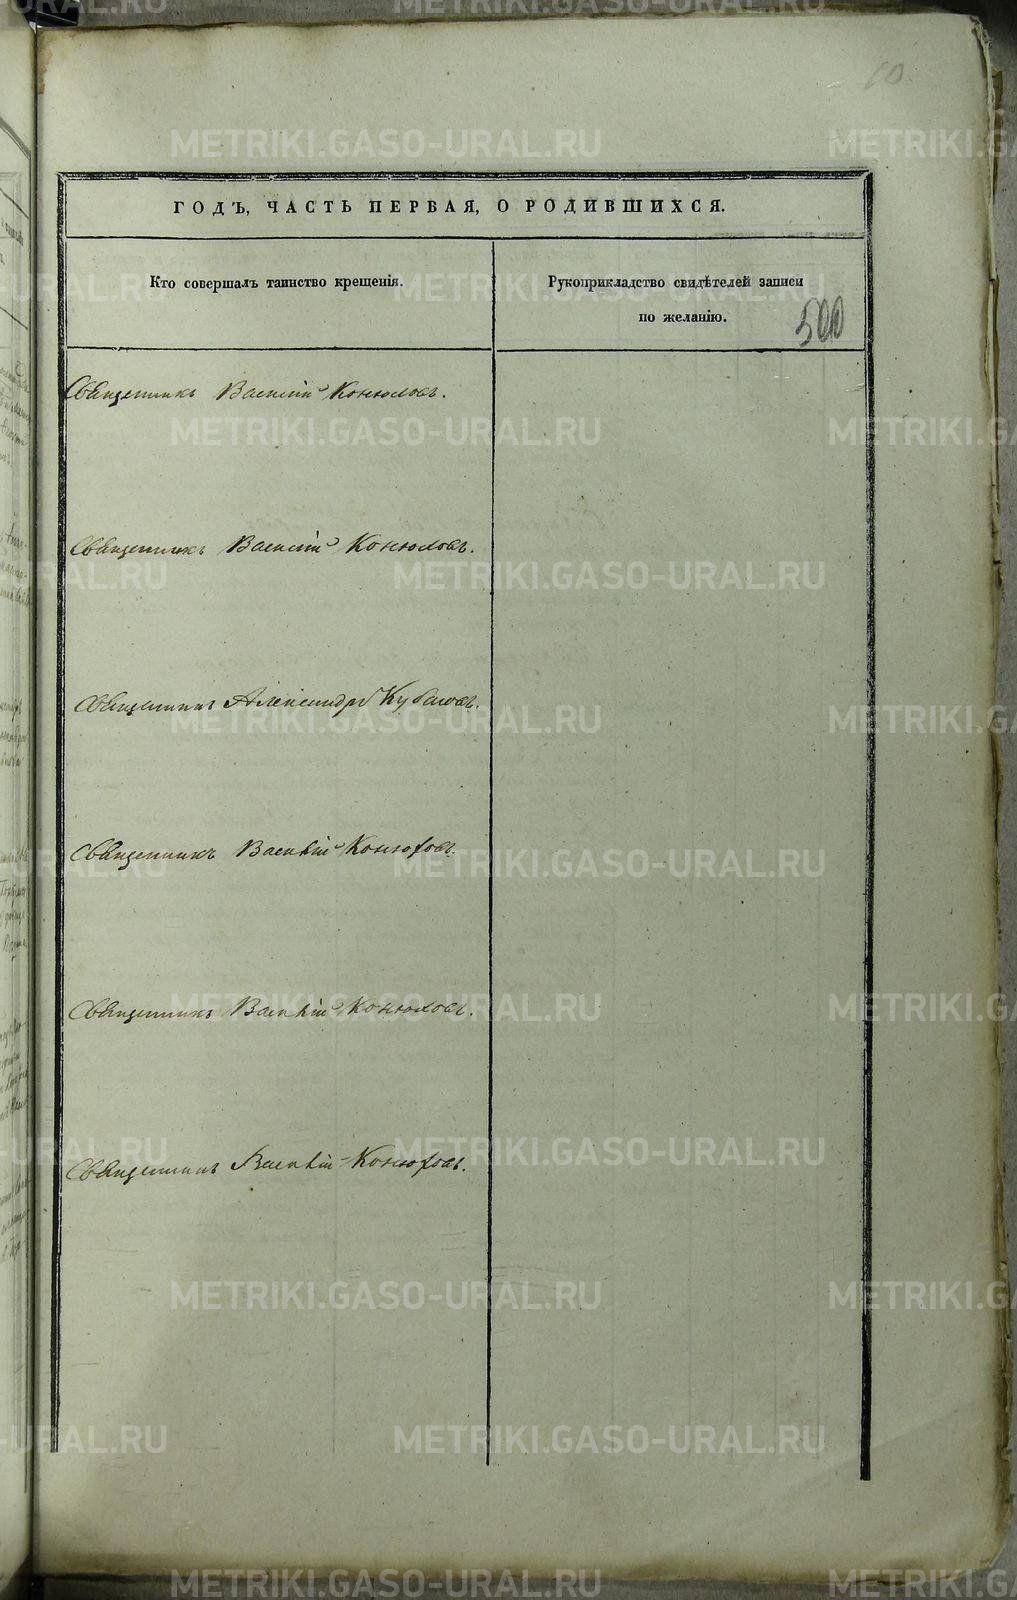 10
ГОДЪ, ЧАСТЬ ПЕРВАЯ, О РОДИВШИХСЯ.
Кто совершалъ таинство крещенія.
Рукоприкладство свидѣтелей записи
по желанію.
500
Священникъ Василій Конюховъ.
Священникъ Василій Конюховъ.
Священникъ Александръ
Священникъ Василій Конюховъ.
Священникъ Василій Конюховъ.
Священникъ Василій Конюховъ.
METRIKI.GASO-URAL.RU